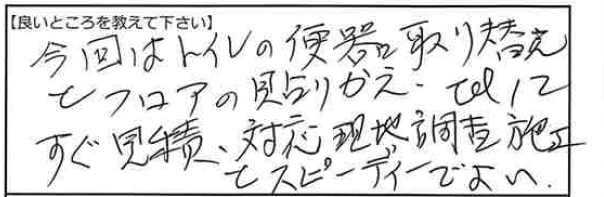 【良いところを教えて下さい】
今回はトイレの便器取り替え
とフロアの貼りかえ. telして
すぐ見積、対応現地調査施工
とスピーディーでよい.